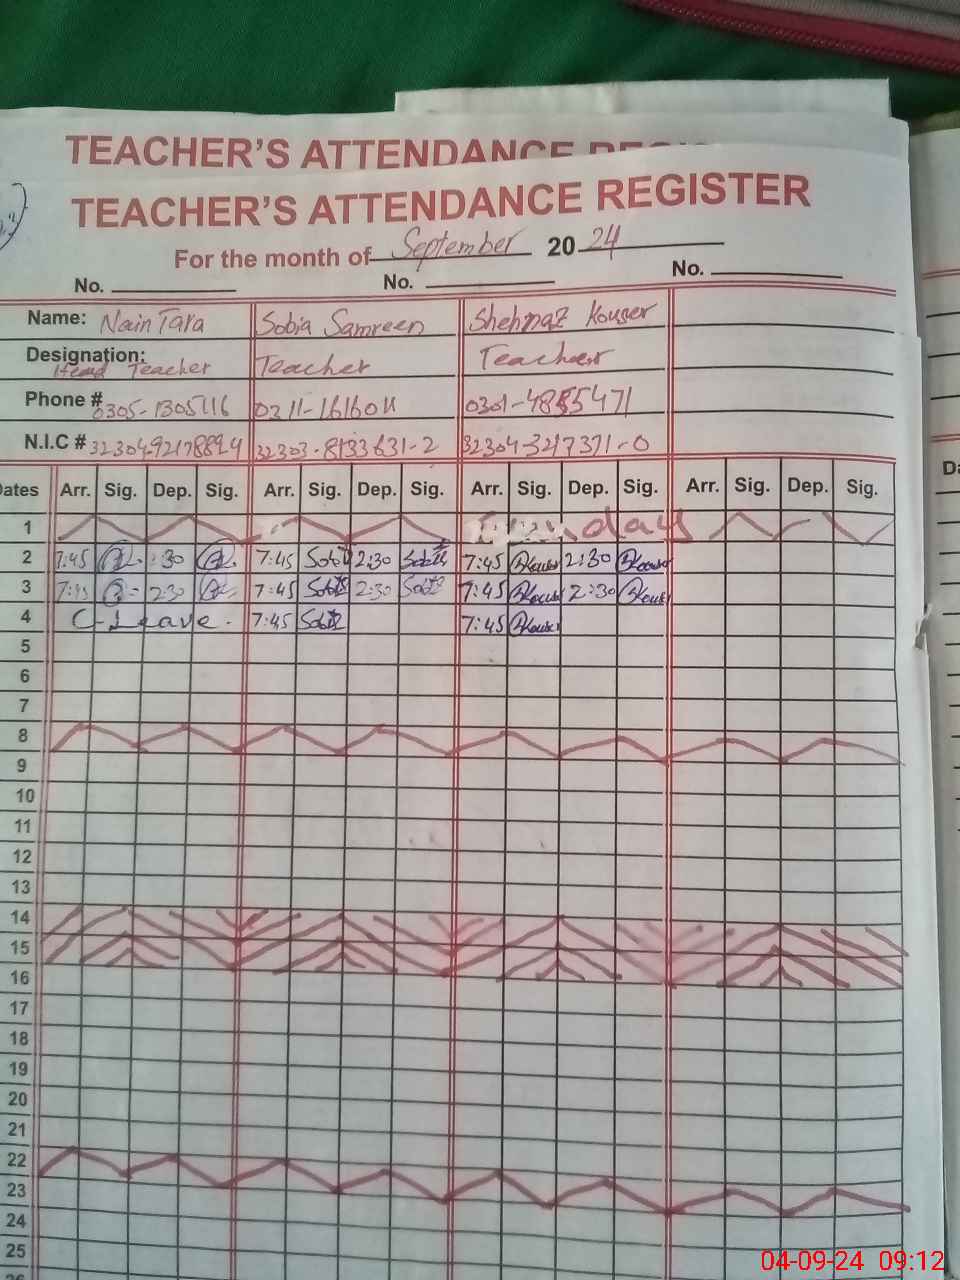 TEACHER'S ATTENDANCE REGIS
TEACHER'S ATTENDANCE REGISTER
For the month of September 2024
No. No. No.
Name: Nain Tara Sobia Samreen Shehnaz Kouser
Designation: Head Teacher Teacher Teacher
Phone # 0305-1305116 0311-1616011 0301-4855471
N.I.C # 32304-9217889-4 32303-8133631-2 32304-3217371-0
Dates Arr. Sig. Dep. Sig. Arr. Sig. Dep. Sig. Arr. Sig. Dep. Sig. Arr. Sig. Dep. Sig.
1 Sunday
2 7:45 2:30 7:45 2:30 7:45 Kouser 2:30 Kouser
3 7:45 2:30 7:45 2:30 7:45 Kouser 2:30 Kouser
4 C-Leave. 7:45 7:45 Kouser
5
6
7
8
9
10
11
12
13
14
15
16
17
18
19
20
21
22
23
24
25
26
04-09-24 09:12